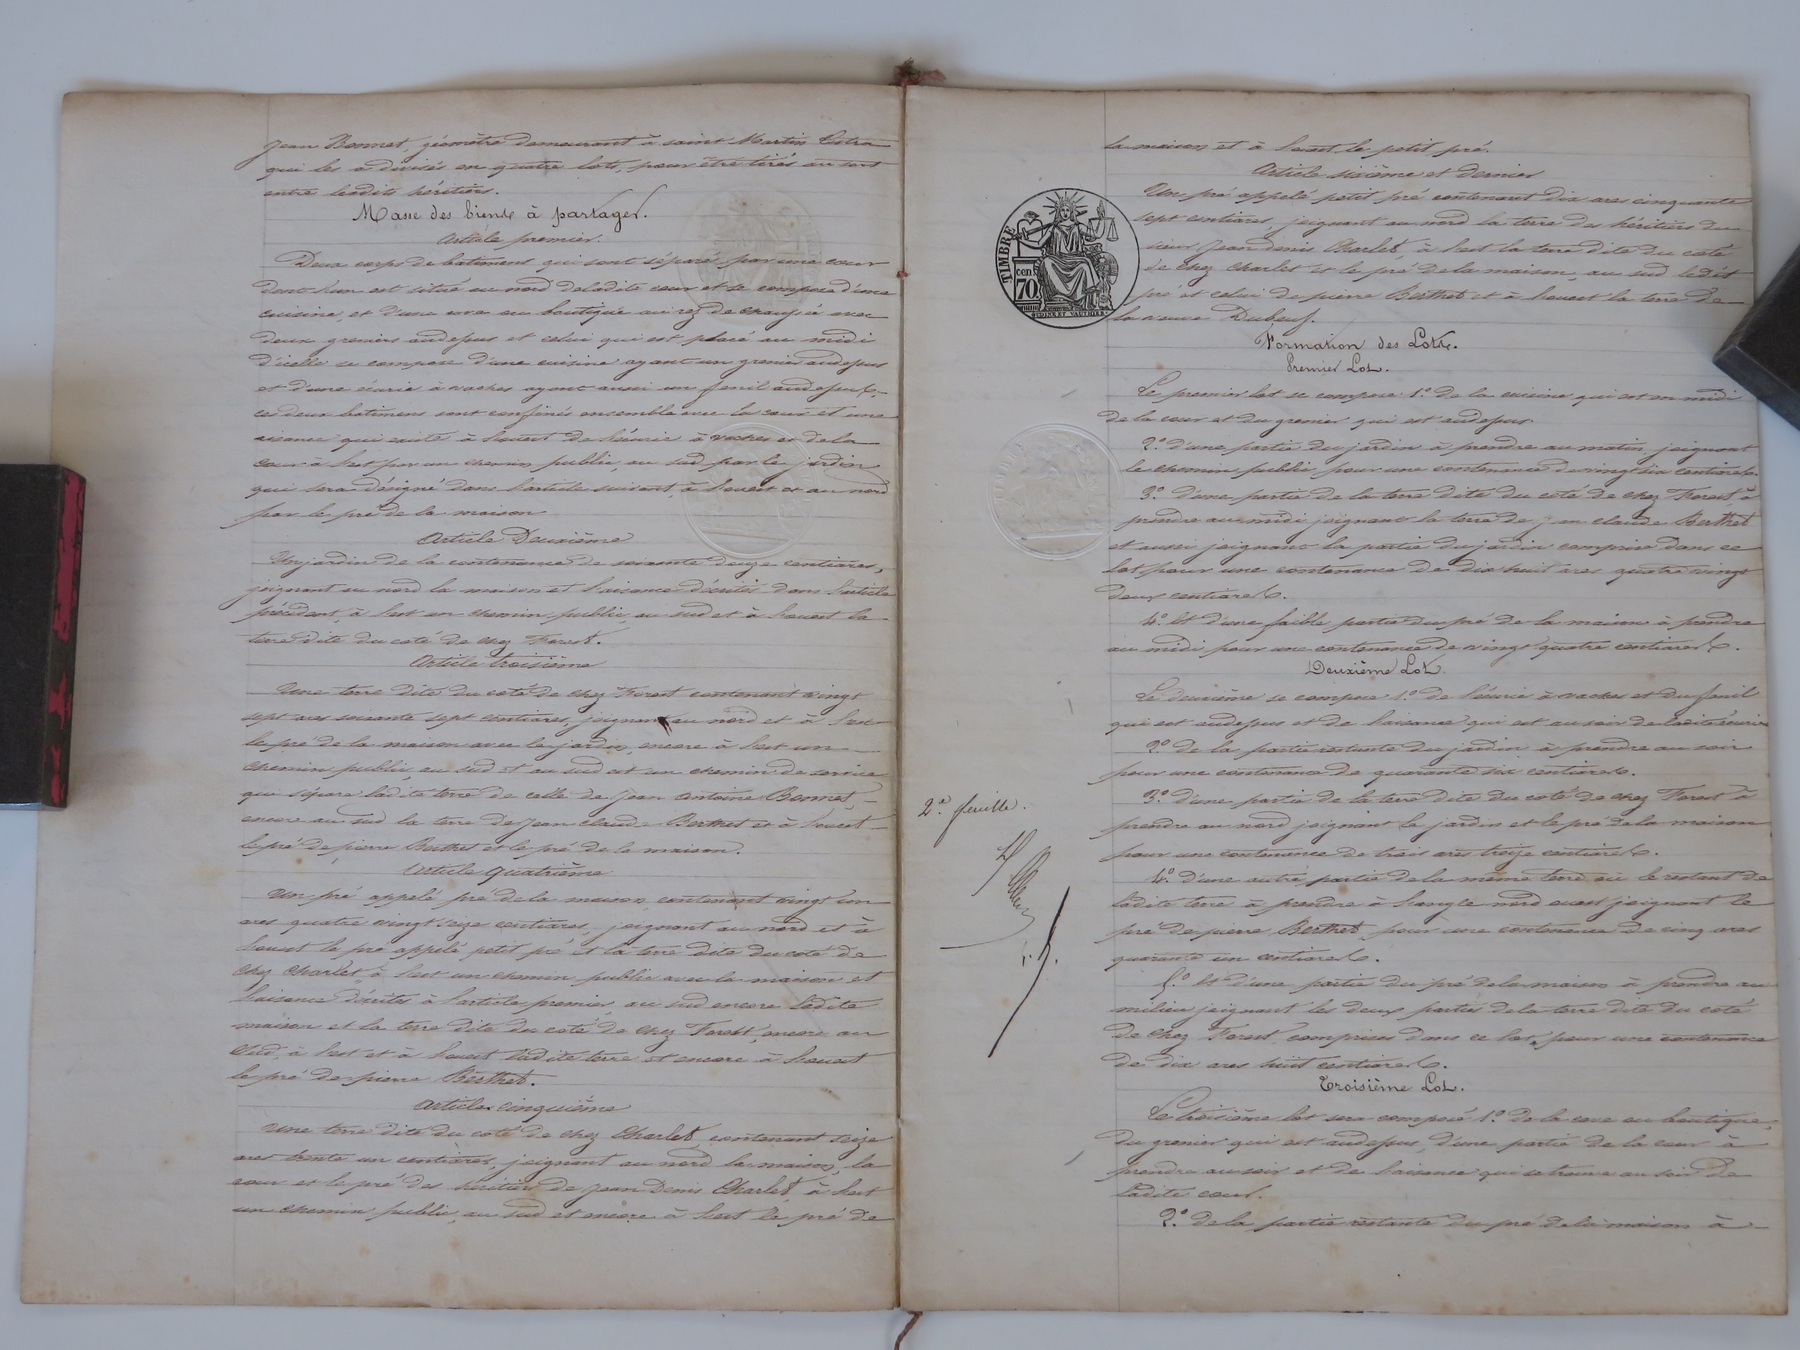 Jean Bonnet, géomètre demeurant à saint Martin Lestra
qui les a divisés en quatre lots, pour être tirés au sort
entre lesdits héritiers.
Masse des biens à partager.
Article premier.
Deux corps de batiments qui sont séparés par une cour
dont l'un est situé au nord de ladite cour et se compose d'une
cuisine, et d'une cave ou boutique au rez de chaussée avec
deux greniers audessus et celui qui est placé au midi
d'icelle se compose d'une cuisine ayant un grenier audessus
et d'une écurie à vaches ayant aussi un fenil audessus,
ces deux batimens sont confinés ensemble avec la cour et une
aisance qui existe à l'ouest de l'écurie à vaches et de la
cour à l'est par un chemin public, au sud par le jardin
qui sera désigné dans l'article suivant à l'ouest et au nord
par le pré de la maison
Article Deuxième
Un jardin de la contenance de soixante douze centiares,
joignant au nord la maison et l'aisance décrites dans l'article
précédent, à l'est un chemin public, au sud et à l'ouest la
terre dite du coté de chez Forest.
Article troisième
Une terre dite du coté de chez Forest contenant vingt
sept ares soixante sept centiares, joignant au nord et à l'est
le pré de la maison avec le jardin, encore à l'est un
chemin public, au sud et au sud est un chemin de service
qui sépare ladite terre de celle de Jean Antoine Bonnet,
encore au sud la terre de Jean claude Berthet et à l'ouest
le pré de pierre Berthet et le pré de la maison.
Article quatrième
Un pré appelé pré de la maison contenant vingt un
ares quatre vingt seize centiares, joignant au nord et à
l'ouest le pré appelé petit pré et la terre dite du coté de
chez Charlet, à l'est un chemin public avec la maison et
l'aisance décrites à l'article premier, au sud encore ladite
maison et la terre dite du coté de chez Forest, encore au
Sud, à l'est et à l'ouest ladite terre et encore à l'ouest
le pré de pierre Berthet.
Article cinquième
Une terre dite du coté de chez Charlet, contenant seize
ares trente un centiares, joignant au nord la maison, la
cour et le pré des héritiers de Jean Denis Charlet, à l'est
un chemin public, au sud et encore à l'est le pré de
la maison et à l'ouest le petit pré.
Article sixième et dernier
Un pré appelé petit pré contenant dix ares cinquante
sept centiares, joignant au nord la terre des héritiers du
sieur Jean denis Charlet, à l'est la terre dite du coté
de chez Charlet et le pré de la maison, au sud ledit
pré et celui de pierre Berthet et à l'ouest la terre de
la veuve Dubeuf.
TIMBRE
cen
70
Formation des Lots.
Premier Lot.
Le premier lot se compose 1.º de la cuisine qui est au midi
de la cour et du grenier qui est audessus
2.º d'une partie du jardin à prendre au matin, joignant
le chemin public, pour une contenance de vingt six centiares
3.º d'une partie de la terre dite du coté de chez Forest à
prendre au midi joignant la terre de jean claude Berthet
et aussi joignant la partie du jardin comprise dans ce
lot pour une contenance de dix huit ares quatre vingt
deux centiares.
4.º Et d'une faible partie du pré de la maison à prendre
au midi pour une contenance de vingt quatre centiares.
Deuxième Lot.
Le deuxième se compose 1.º de l'écurie à vaches et du fenil
qui est audessus et de l'aisance qui est au soir de ladite écurie
2.º de la partie restante du jardin à prendre au soir
pour une contenance de quarante six centiares.
3.º d'une partie de la terre dite du coté de chez Forest à
prendre au nord joignant le jardin et le pré de la maison
pour une contenance de trois ares treize centiares.
4.º d'une autre partie de la même terre ou le restant de
ladite terre à prendre à l'angle nord ouest joignant le
pré de pierre Berthet, pour une contenance de cinq ares
quarante un centiares.
5.º Et d'une partie du pré de la maison à prendre au
milieu joignant les deux parties de la terre dite du coté
de chez Forest, comprises dans ce lot, pour une contenance
de dix ares huit centiares.
Troisième Lot.
Le troisième lot sera composé 1.º de la cave ou boutique,
du grenier qui est audessus, d'une partie de la cour à
prendre au soir et de l'aisance qui se trouve au soir de
ladite cour.
2.º de la partie restante du pré de la maison à
2.e feuille.